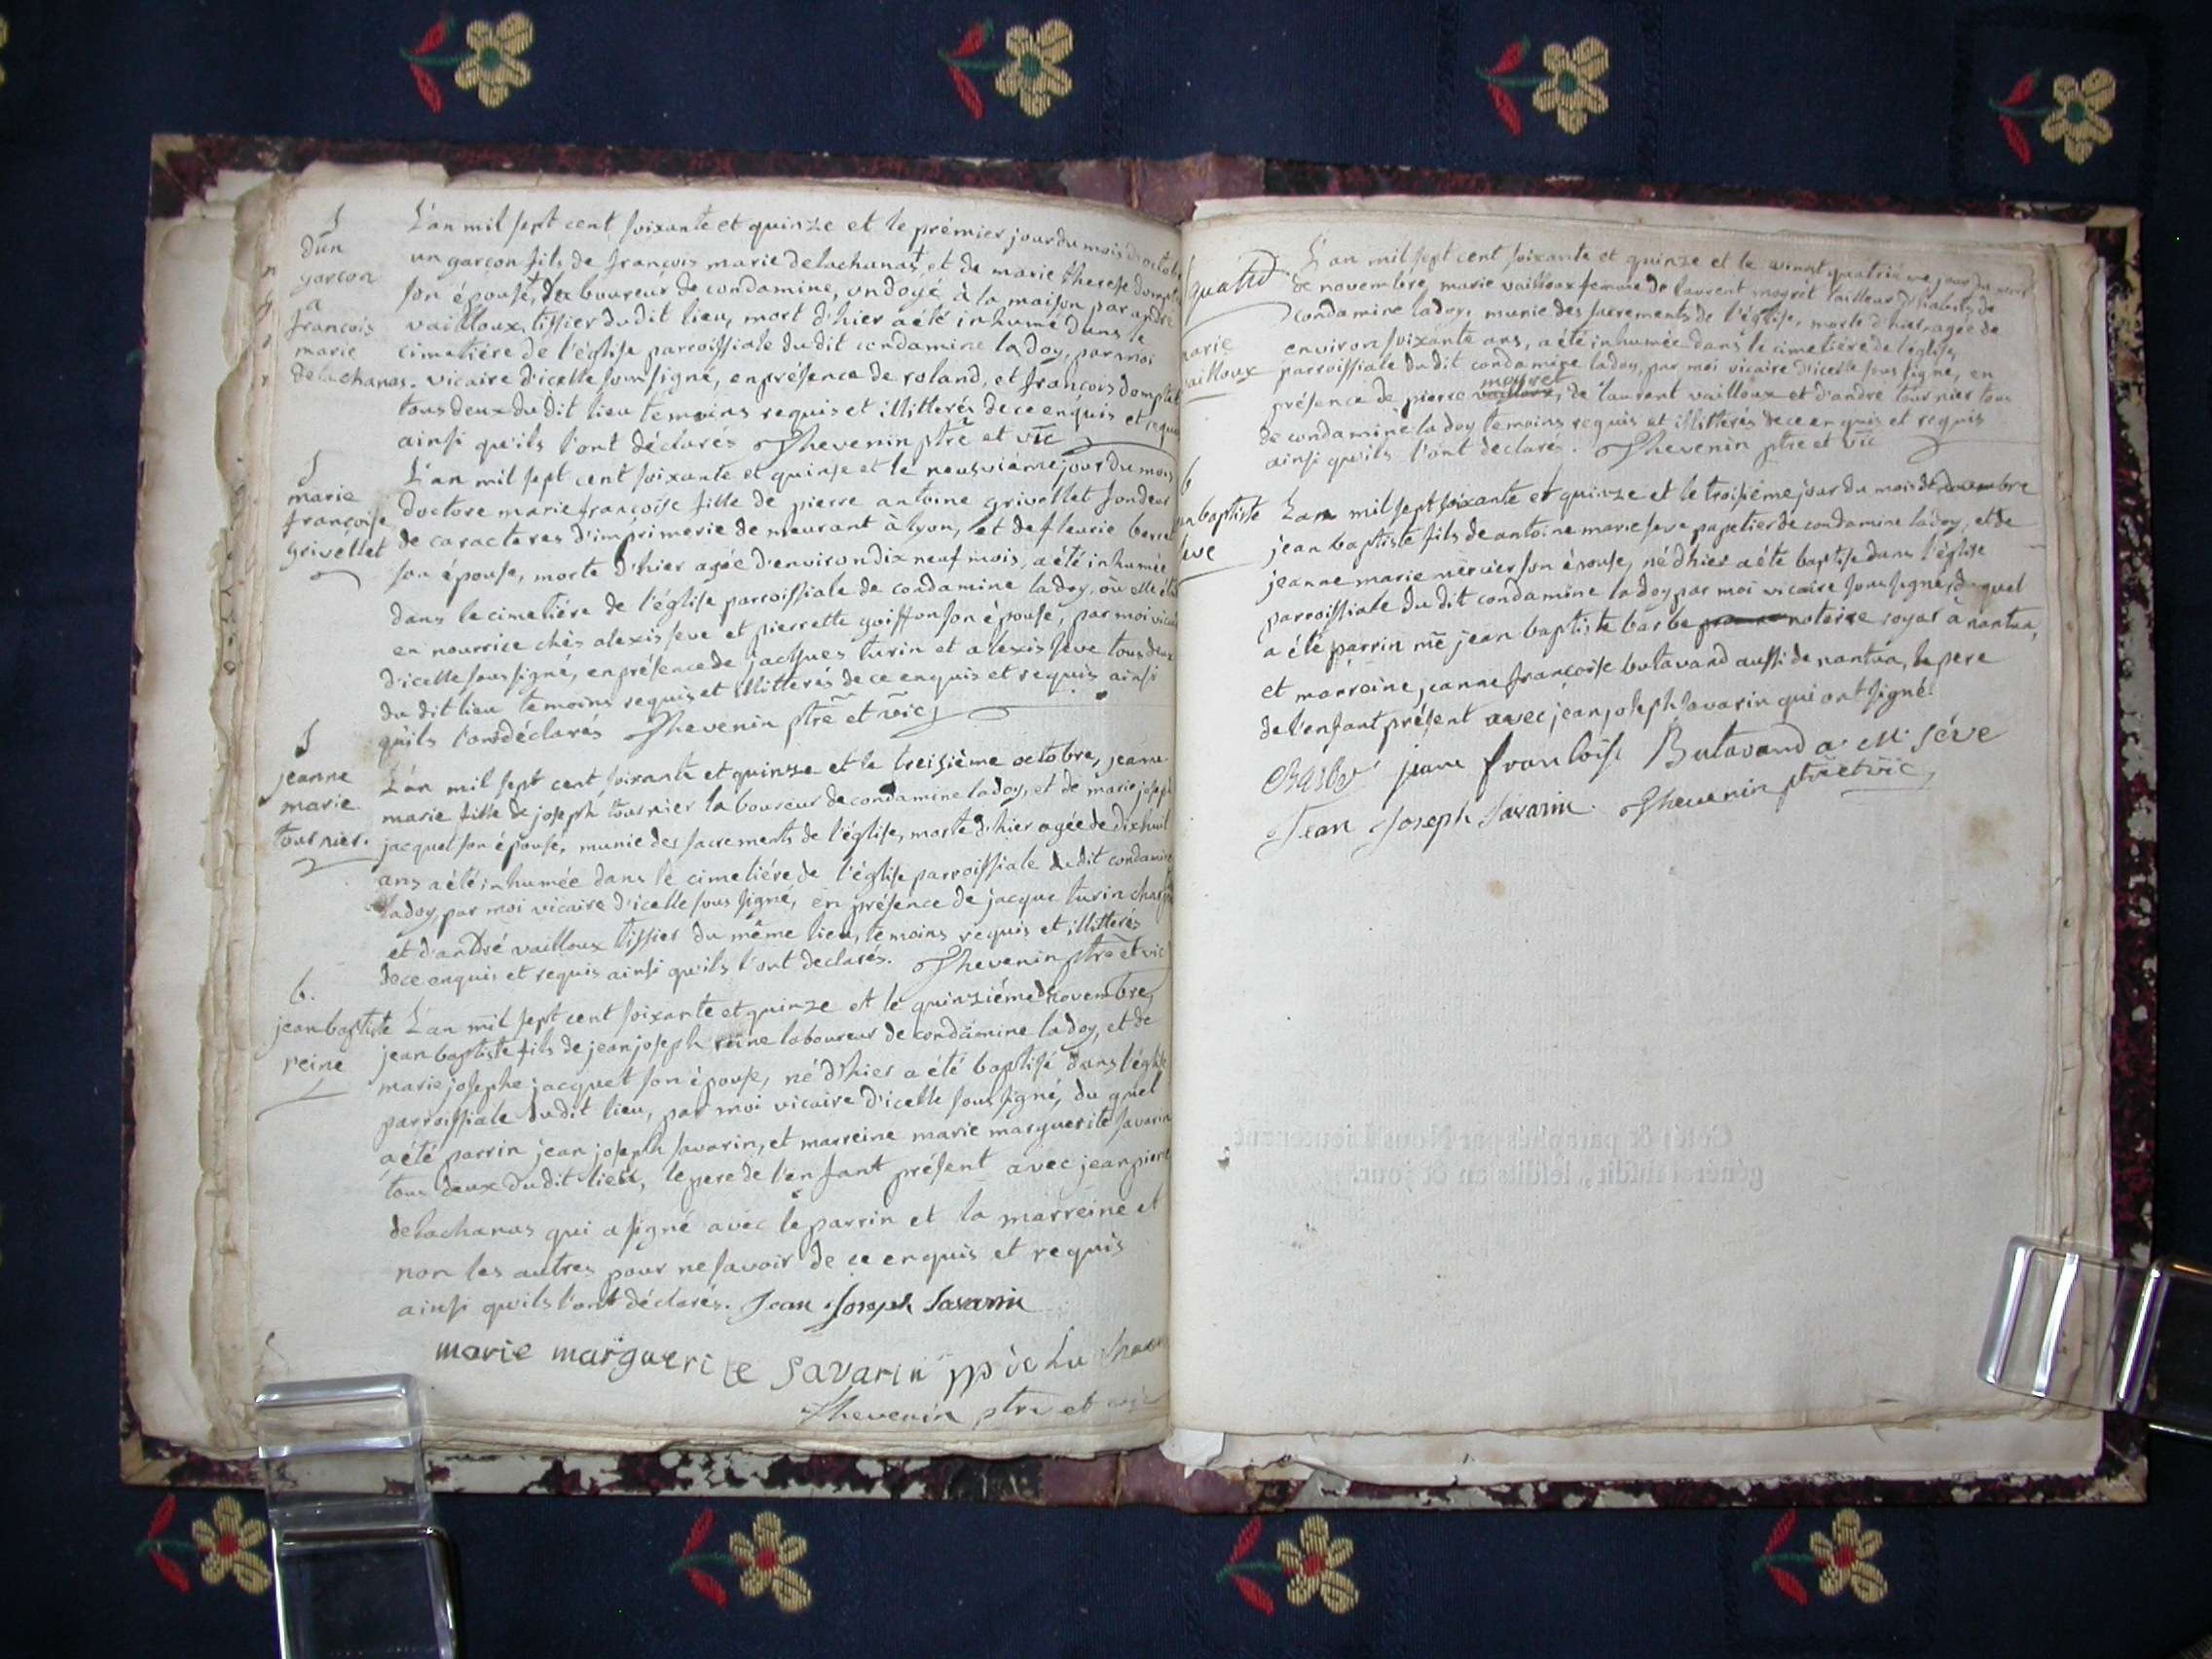 S
d'un
garçon
a
francois
marie
delachanas.
L'an mil sept cent soixante et quinze et le prémier jour du mois d'octob
un garçon fils de francois marie delachanas et de marie therese domp
son épouse, laboureur de condamine, ondoyé à la maison par andré
vailloux tissier du dit lieu, mort d'hier a été inhumé dans le
cimetiére de l'église parroissiale du dit condamine ladoy, par moi
vicaire d'icelle soussigné, en présence de roland, et francois domp
tous deux du dit lieu temoins requis et illitterés de ce enquis et requis
ainsi qu'ils l'ont déclarés Thevenin ptre et vic
S
marie
françoise
grivellet
L'an mil sept cent soixante et quinse et le neufviéme jour du mois
doctore marie françoise fille de pierre antoine grivellet fondeur
de caracteres d'imprimerie demeurant à lyon, et de fleurie
son épouse, morte d'hier agée d'environ dix neuf mois, a été inhumée
dans le cimetiére de l'église parroissiale de condamine ladoy, où elle
en nourrice chès alexis seve et pierrette goiffon son épouse, par moi
d'icelle soussigné, en présence de jacques turin et alexis seve tous deux
du dit lieu temoins requis et illitterés de ce enquis et requis ainsi
qu'ils l'ont déclarés Thevenin ptre et vic
S
jeanne
marie
tournier.
L'an mil sept cent soixante et quinze et le treisième octobre, jeanne
marie fille de joseph tournier laboureur de condamine ladoy, et de marie joseph
jacquet son épouse, munie des sacrements de l'église, morte d'hier agée de dix huit
ans a été inhumée dans le cimetiére de l'église parroissiale du dit condamine
ladoy, par moi vicaire d'icelle sous signé, en présence de jacque turin
et d'andré vailloux tissier du même lieu, temoins requis et illitterés
de ce enquis et requis ainsi qu'ils l'ont declarés. Thevenin ptre et vic
b.
jean baptiste
reine
L'an mil sept cent soixante et quinze et le quinziéme de novembre,
jean baptiste fils de jean joseph reine laboureur de condamine ladoy, et de
marie josephe jacquet son épouse, né d'hier a été baptisé dans l'église
parroissiale du dit lieu, par moi vicaire d'icelle soussigné, du quel
a été parrin jean joseph savarin, et marreine marie marguerite savarin
tous deux du dit lieu, le pere de l'enfant présent avec jean pierre
delachanas qui a signé avec le parrin et la marreine et
non les autres pour ne savoir de ce enquis et requis
ainsi qu'ils l'ont déclarés. Jean Joseph Savarin
marie marguerite savarin
Thevenin ptre et vic
L'an mil sept cent soixante et quinze et le vingt quatriéme jour du mois
de novembre, marie vailloux femme de laurent moyret tailleur d'habits de
condamine ladoy, munie des sacrements de l'église, morte d'hier agée de
arie
ailloux
environ soixante ans, a été inhumée dans le cimetiére de l'église
parroissiale du dit condamine ladoy, par moi vicaire d'icelle sous signé, en
présence de pierre moyret, de laurent vailloux et d'andré tournier tous
de condamine ladoy temoins requis et illitterés de ce enquis et requis
ainsi qu'ils l'ont declarés. Thevenin ptre et vic
b
an baptiste
seve
L'an mil sept soixante et quinze et le troisiéme jour du mois
jean baptiste fils de antoine marie seve papetier de condamine ladoy, et de
jeanne marie mercier son épouse, né d'hier a été baptisé dans l'église
parroissiale du dit condamine ladoy par moi vicaire soussigné, duquel
a été parrin me jean baptiste barbe notaire royal à nantua,
et marraine jeanne françoise butavand aussi de nantua, le pere
de l'enfant présent avec jean joseph savarin qui ont signé.
jeanne françoise Butavand a. M. séve
Jean Joseph Savarin. Thevenin ptre et vic